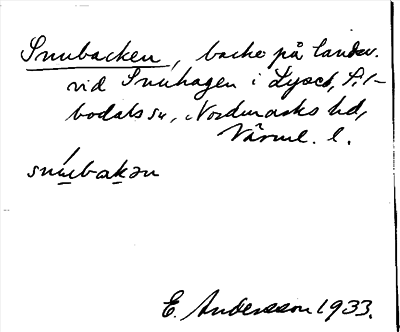 Snubacken, backe på landsv.
vid Snuhagen i Lysed, Sil-
bodals sn, Nordmarks hd,
Värml. l.
snúbakən
E. Andersson 1933.